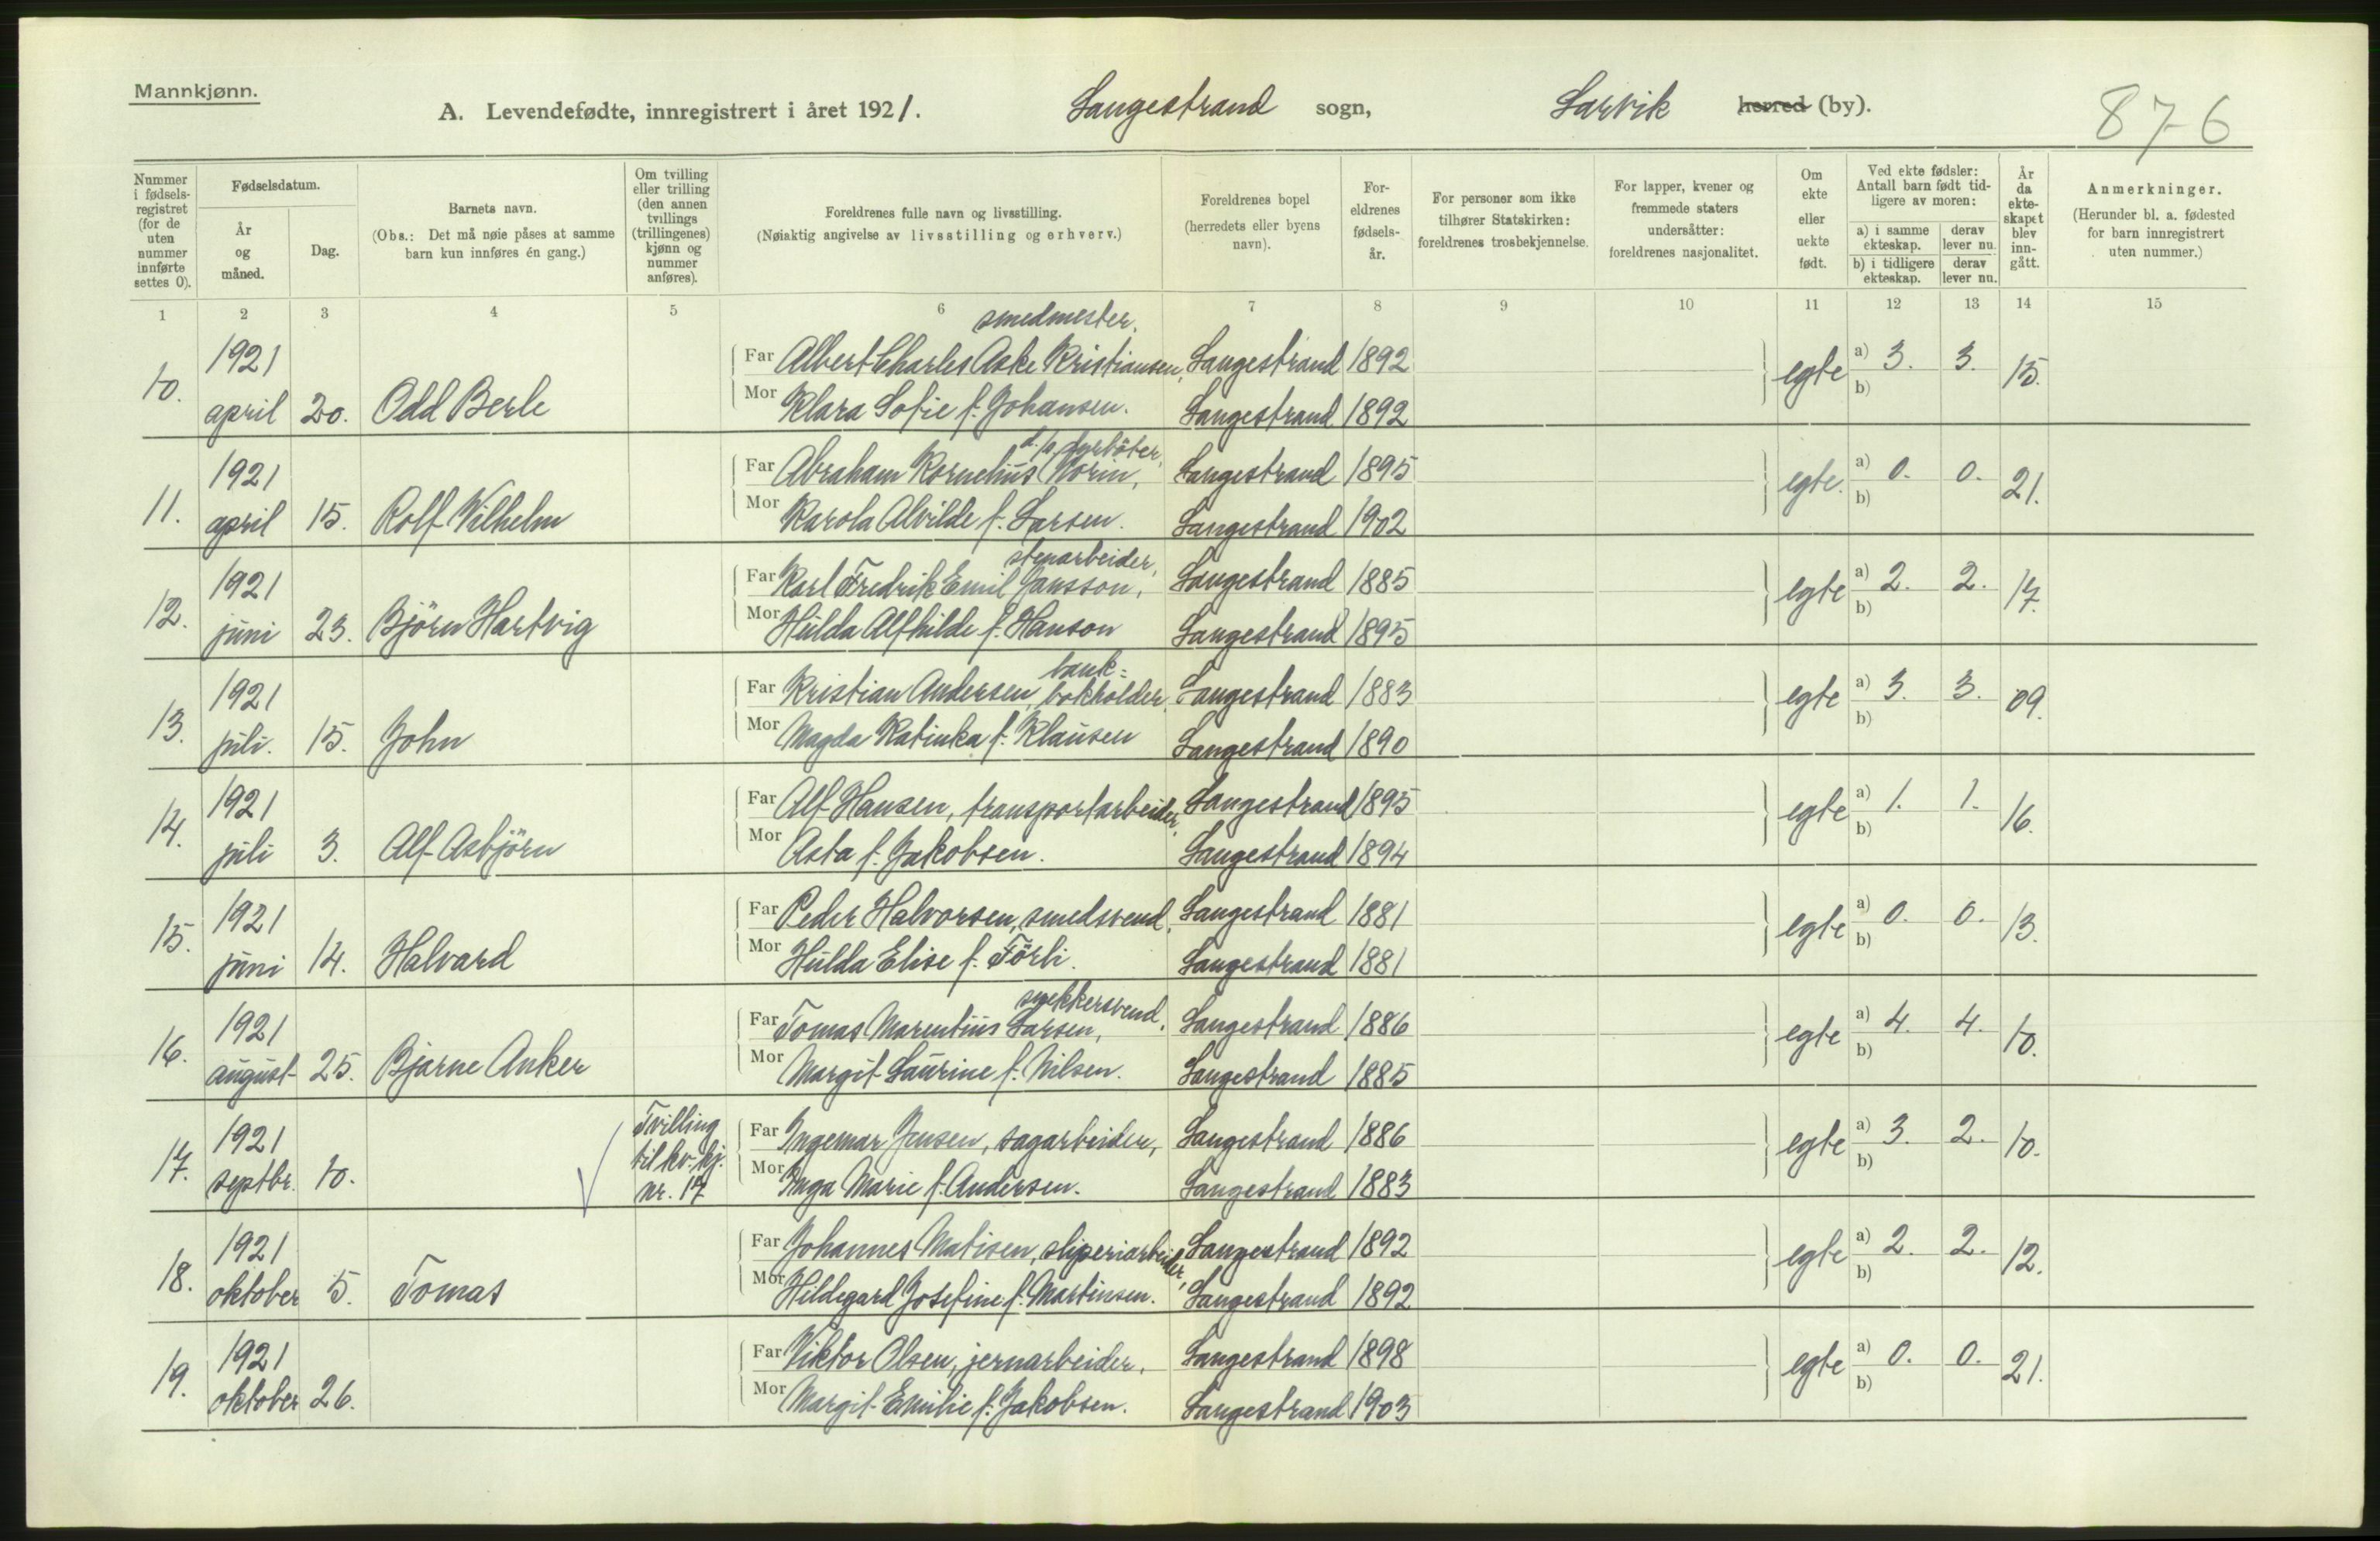 Mannkjønn.
A. Levendefødte, innregistrert i året 1921. Langestrand sogn, Larvik herred (by). 876
Nummer i fødselsregistret (for de uten nummer innførte settes 0).
Fødselsdatum.
År og måned.
Dag.
Barnets navn.
(Obs.: Det må nøie påses at samme barn kun innføres én gang.)
Om tvilling eller trilling (den annen tvillings (trillingenes) kjønn og nummer anføres).
Foreldrenes fulle navn og livsstilling.
(Nøiaktig angivelse av livsstilling og erhverv.)
Foreldrenes bopel
(herredets eller byens navn).
Foreldrenes fødselsår.
For personer som ikke tilhører Statskirken: foreldrenes trosbekjennelse.
For lapper, kvener og fremmede staters undersåtter: foreldrenes nasjonalitet.
Om ekte eller uekte født.
Ved ekte fødsler: Antall barn født tidligere av moren:
a) i samme ekteskap.
derav lever nu.
b) i tidligere ekteskap.
derav lever nu.
År da ekteskapet blev inngått.
Anmerkninger.
(Herunder bl. a. fødested for barn innregistrert uten nummer.)
1 2 3 4 5 6 7 8 9 10 11 12 13 14 15
smedmester.
10. 1921 Far Albert Charles Aske Kristiansen, Langestrand 1892 egte a) 3. 3. 15.
april 20. Odd Berle Mor Klara Sofie f. Johansen. Langestrand 1892 b)
d/s fyrböter,
11. 1921 Far Abraham Kornelius Norin, Langestrand 1895 egte. a) 0. 0. 21.
april 15. Rolf Vilhelm Mor Karola Alvilde f. Larsen. Langestrand 1902 b)
stenarbeider,
12. 1921 Far Karl Fredrik Emil Jansson, Langestrand 1885 egte a) 2. 2. 17.
juni 23. Björn Hartvig Mor Hulda Alfhilde f. Hanson Langestrand 1895 b)
bank-
13. 1921 Far Kristian Andersen, bokholder, Langestrand 1883 egte a) 3. 3. 09.
juli. 15. John Mor Magda Katinka f. Klausen Langestrand 1890 b)
14. 1921 Far Alf Hansen, transportarbeider, Langestrand 1895 egte a) 1. 1. 16.
juli 3. Alf Asbjörn Mor Asta f. Jakobsen. Langestrand 1894 b)
15. 1921 Far Peder Halvorsen, smedsvend, Langestrand 1881 egte a) 0. 0. 13.
juni 14. Halvard Mor Hulda Elise f. Förli. Langestrand 1881 b)
snekkersvend.
16. 1921 Far Tomas Marentius Larsen, Langestrand 1886 egte a) 4. 4. 10.
august 25. Bjarne Anker Mor Margit Laurine f. Nilsen. Langestrand 1885 b)
17. 1921 Tvilling til kv. kj. nr. 17 Far Ingemar Jensen, sagarbeider, Langestrand 1886 egte a) 3. 2. 10.
septbr. 10. Mor Inga Marie f. Andersen. Langestrand 1883 b)
18. 1921 Far Johannes Matisen, sliperiarbeider, Langestrand 1892 egte a) 2. 2. 12.
oktober 5. Tomas Mor Hildegard Josefine f. Martinsen. Langestrand 1892 b)
19. 1921 Far Viktor Olsen, jernarbeider, Langestrand 1898 egte a) 0. 0. 21.
oktober 26. Mor Margit Emilie f. Jakobsen. Langestrand 1903 b)